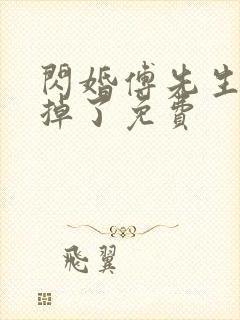 閃婚傅先生
掉了免費
飛翼